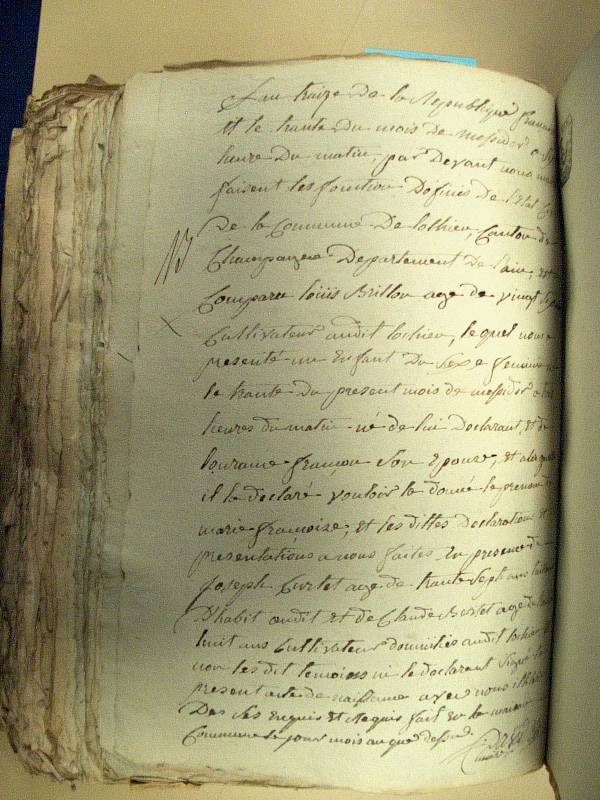 L'an treize de la Republique française
Et le trante du mois de Messidor a
heure du matin, par Devant nous maire
faisent les fonction Dofficié de l'Etat
De la Commune De lochieu, Canton de
Champagne Departement De l'ain, est
Comparu louis Brillon age de vingt sept
Cultivateur audit lochieu, le quel nous a
presenté un Enfant Du Sexe feminin né
le trante Du present mois de messidor a
heures du matin né de lui Declarant, et de
françon Son Epouze, et
il la declaré vouloir la donné le prenom
marie françoize, et les dittes Declaration et
presentations a nous faites En presence de
Joseph Curtet age de trante Sept ans tailleur
D'habit audit Et de Claude Berlet age de
huit ans Cultivateur domiciliés audit lochieu
non les dit temoins ni le declarant Signé le
present acte de naissance avec nous
De Ses Enquis Et Requis fait En la maison
Commune le jour mois an que dessus.